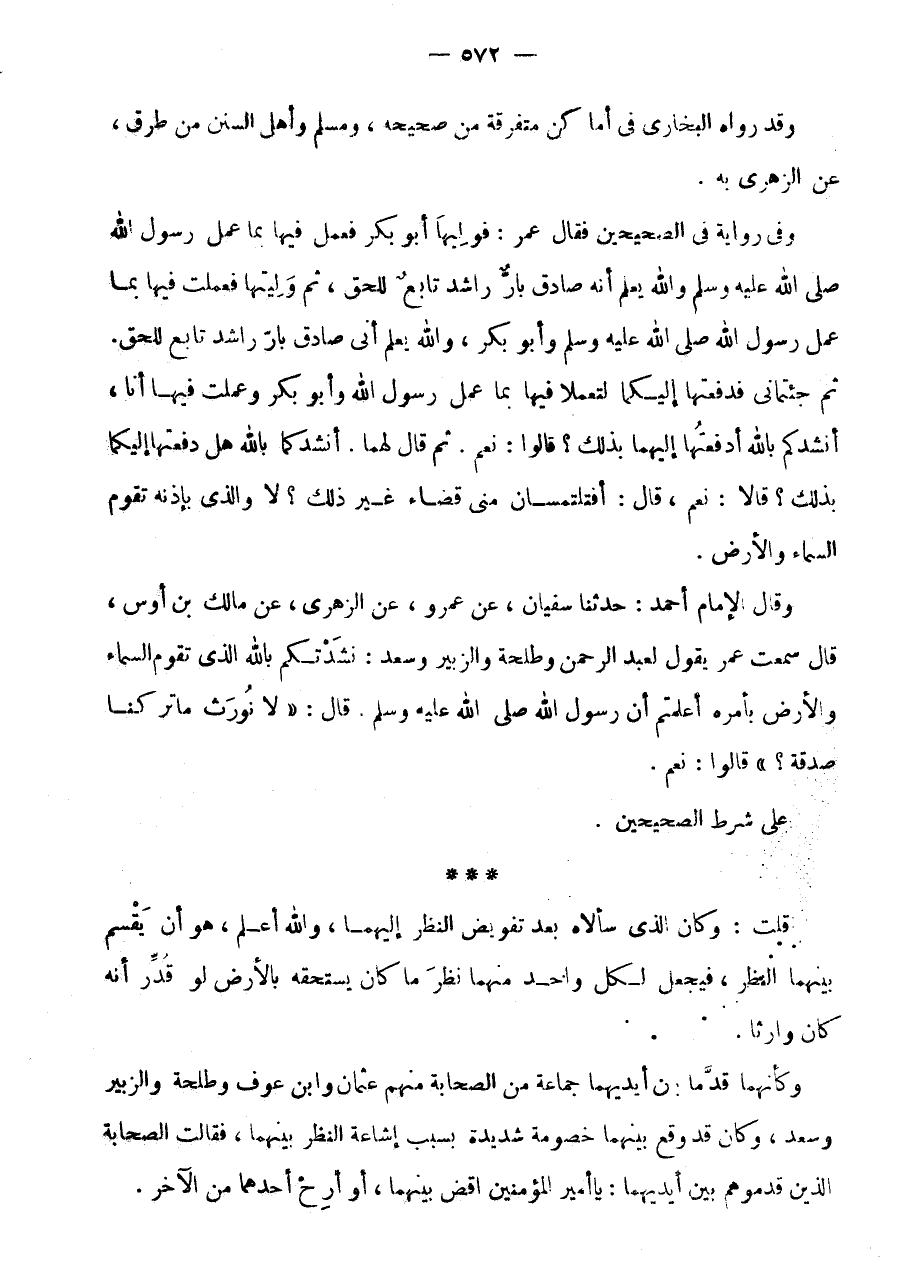 — ٥٧٢ —
وقد رواه البخارى فى أماكن متفرقة من صحيحه ، ومسلم وأهل السنن من طرق ،
عن الزهرى به .
وفى رواية فى الصحيحين فقال عمر : فوليهَا أبو بكر فعمل فيها بما عمل رسول الله
صلى الله عليه وسلم والله يعلم أنه صادق بارٌّ راشد تابعٌ للحق ، ثم وَلِيتها فعملت فيها بمـا
عمل رسول الله صلى الله عليه وسلم وأبو بكر ، والله يعلم أنى صادق بارّ راشد تابع للحق.
ثم جئتمانى فدفعتها إليـكما لتعملا فيها بما عمل رسول الله وأبو بكر وعملت فيهـا أنا ،
أنشدكم بالله أدفعتُها إليهما بذلك ؟ قالوا : نعم . ثم قال لهما . أنشدكما بالله هل دفعتها إليكما
بذلك ؟ قالا : نعم ، قال : أفتلتمسـان منى قضـاء غـير ذلك ؟ لا والذى بإذنه تقوم
السماء والأرض .
وقال الإمام أحمد : حدثنا سفيان ، عن عمرو ، عن الزهرى ، عن مالك بن أوس ،
قال سمعت عمر يقول لعبد الرحمن وطلحة والزبير وسعد : نشَدْتـكم بالله الذى تقوم السماء
والأرض بأمره أعلمتم أن رسول الله صلى الله عليه وسلم . قال : « لا نُورَث ماتركنـا
صدقة ؟ » قالوا : نعم .
على شرط الصحيحين .
***
قلت : وكان الذى سألاه بعد تفويض النظر إليهمـا ، والله أعـلم ، هو أن يَقْسم
بينهما النظر ، فيجعل لـكل واحـد منهما نظرَ ما كان يستحقه بالأرض لو قُدِّر أنه
كان وارثا .
وكأنهما قدَّما بين أيديهما جماعة من الصحابة منهم عثمان وابن عوف وطلحة والزبير
وسعد ، وكان قد وقع بينهما خصومة شديدة بسبب إشاعة النظر بينهما ، فقالت الصحابة
الذين قدموهم بين أيديهما : ياأمير المؤمنين اقض بينهما ، أو أرِحْ أحدهما من الآخر .